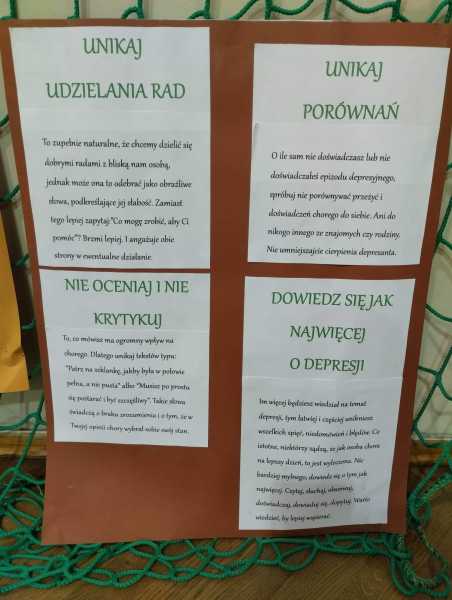 UNIKAJ
UDZIELANIA RAD
To zupełnie naturalne, że chcemy dzielić się
dobrymi radami z bliską nam osobą,
jednak może ona to odebrać jako obraźliwe
słowa, podkreślające jej słabość. Zamiast
tego lepiej zapytaj:"Co mogę zrobić, aby Ci
pomóc"? Brzmi lepiej. I angażuje obie
strony w ewentualne działanie.
UNIKAJ
PORÓWNAŃ
O ile sam nie doświadczasz lub nie
doświadczałeś epizodu depresyjnego,
spróbuj nie porównywać przeżyć i
doświadczeń chorego do siebie. Ani do
nikogo innego ze znajomych czy rodziny.
Nie umniejszajcie cierpienia depresanta.
NIE OCENIAJ I NIE
KRYTYKUJ
To, co mówisz ma ogromny wpływ na
chorego. Dlatego unikaj tekstów typu:
"Patrz na szklankę, jakby była w połowie
pełna, a nie pusta" albo "Musisz po prostu
się postarać i być szczęśliwy". Takie słowa
świadczą o braku zrozumienia i o tym, że w
Twojej opinii chory wybrał sobie swój stan.
DOWIEDZ SIĘ JAK
NAJWIĘCEJ
O DEPRESJI
Im więcej będziesz wiedział na temat
depresji, tym łatwiej i częściej unikniesz
wszelkich spięć, niedomówień i błędów. Co
istotne, niektórzy sądzą, że jak osoba chora
ma lepszy dzień, to jest wyleczona. Nic
bardziej mylnego, dowiedz się o tym jak
najwięcej. Czytaj, słuchaj, obserwuj,
doświadczaj, dowiaduj się, dopytuj. Warto
wiedzieć, by lepiej wspierać.